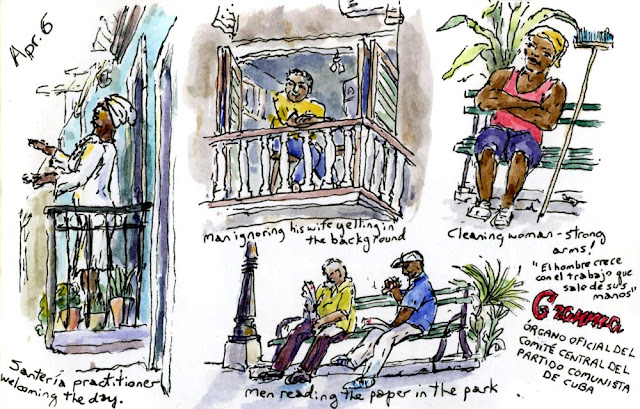 Apr. 6
Man ignoring his wife yelling in
the background
Cleaning woman - strong
arms!
"El hombre crece
con el trabajo que
sale de sus
manos"
Granma
ÓRGANO OFICIAL DEL
COMITÉ CENTRAL DEL
PARTIDO COMUNISTA
DE CUBA
Santería practitioner
welcoming the day.
Men reading the paper in the park